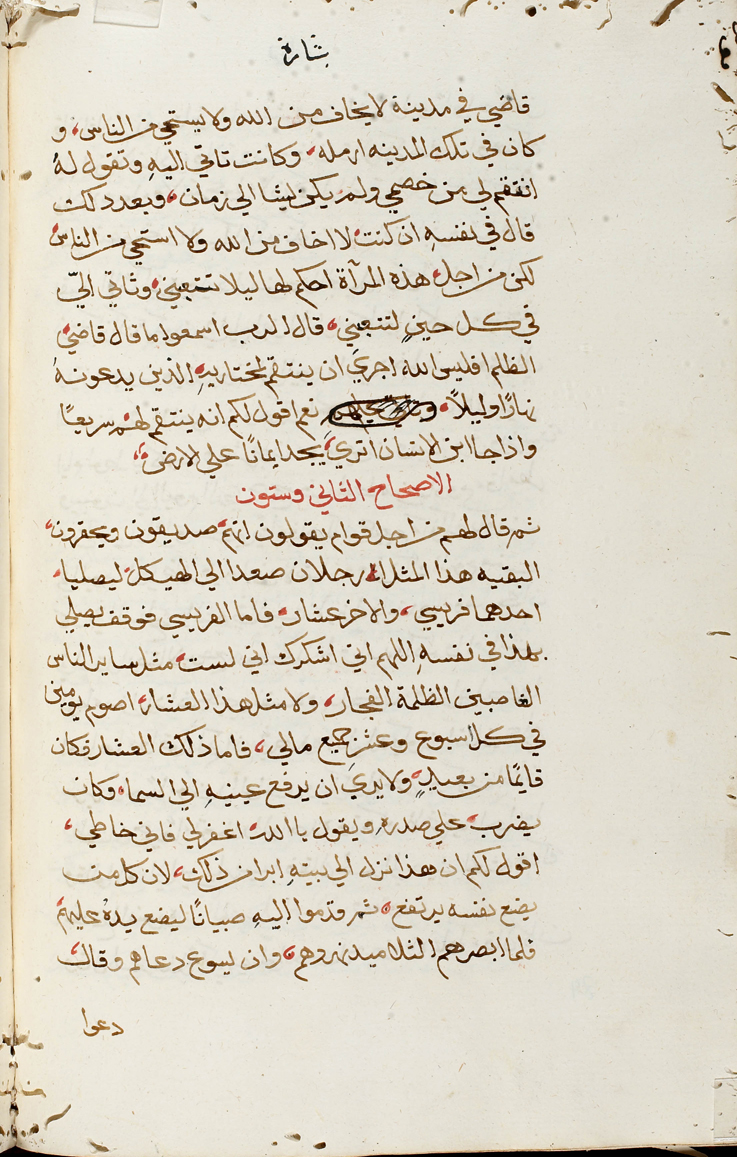 شارة
قاضي في مدينة لا يخاف من الله ولا يستحي من الناس، و
كان في تلك المدينه ارمله، وكانت تاتي اليهِ وتقول لهُ
انتقم لي من خصمي ولم يكن يشا الي زمان، وبعد ذلك
قال في نفسهِ ان كنت لا اخاف من الله ولا استحي من الناس
لكن من اجل هذه المرآة احكم لها ليلا تتعبني، وتاتي اليّ
في كل حينٍ لتتعبني، قال الرب اسمعوا ما قال قاضي
الظلم افليس الله احري ان ينتقم لمختاريهِ الذين يدعونهُ
نهارًا وليلاً، نعم اقول لكم انه ينتقم لهم سريعًا
واذا جا ابن الانسان اتري يجد ايمانًا علي الارض،
الاصحاح الثاني وستون
ثم قال لهم من اجل قوام يقولون انهم صديقون ويحقرون
البقيه هذا المثل، رجلان صعدا الي الهيكل ليصليا،
احدهما فريسي، والاخر عشار، فاما الفريسي فوقف يصلي
بهذا في نفسهِ اللهم اني اشكرك اني لست مثل ساير الناس
الغاصبين الظلمة الفجار، ولا مثل هذا العشار، اصوم يومين
في كل اسبوع وعشر جميع مالي، فاما ذلك العشار فكان
قايمًا من بعيدٍ، ولا يري ان يرفع عينيهِ الي السما، وكان
يضرب علي صدرهِ ويقول يا الله اغفر لي فاني خاطي،
اقول لكم ان هذا نزل الي بيتهِ ابرا من ذلك، لان كل من
يضع نفسه يرتفع، ثم قدموا اليهِ صبيانًا ليضع يدهُ عليهم
فلما ابصرهم التلاميد نهروهم، وان يسوع دعاهم وقال
دعوا